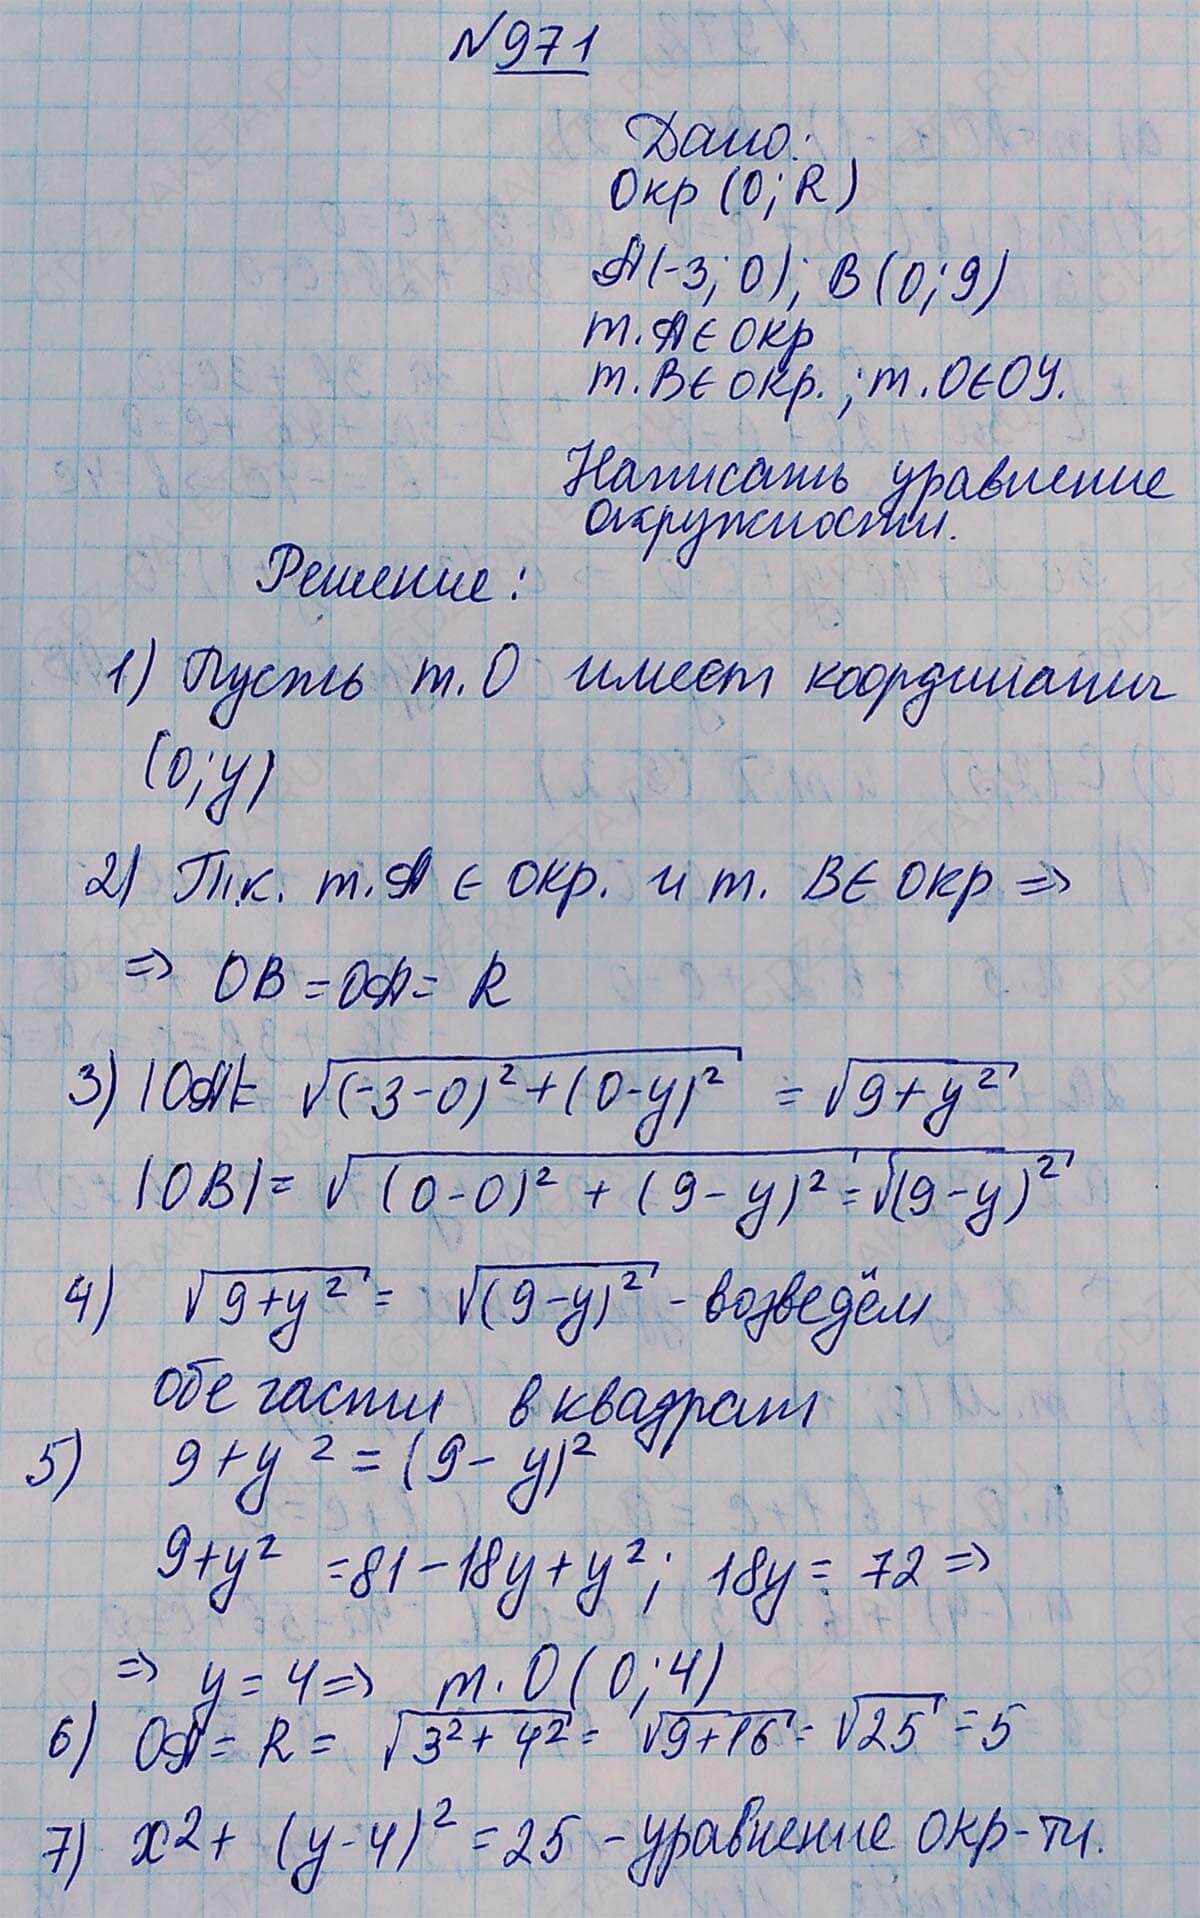 №971
Дано:
Окр (О; R)
А(-3; 0); В (0; 9)
т. А ∈ окр
т. В ∈ окр.; т. О ∈ ОУ.
Написать уравнение
окружности.
Решение:
1) Пусть т. О имеет координаты
(0; y)
2) Т.к. т. А ∈ окр. и т. В ∈ окр =>
=> ОВ = ОА = R
3) |ОА| = √((-3-0)² + (0-y)²) = √(9+y²)
|ОВ| = √((0-0)² + (9-y)²) = √((9-y)²)
4) √(9+y²) = √((9-y)²) - возведём
обе части в квадрат
5) 9+y² = (9-y)²
9+y² = 81-18y+y²; 18y = 72 =>
=> y = 4 => т. О (0; 4)
6) ОА = R = √(3²+4²) = √(9+16) = √25 = 5
7) x² + (y-4)² = 25 - уравнение окр-ти.